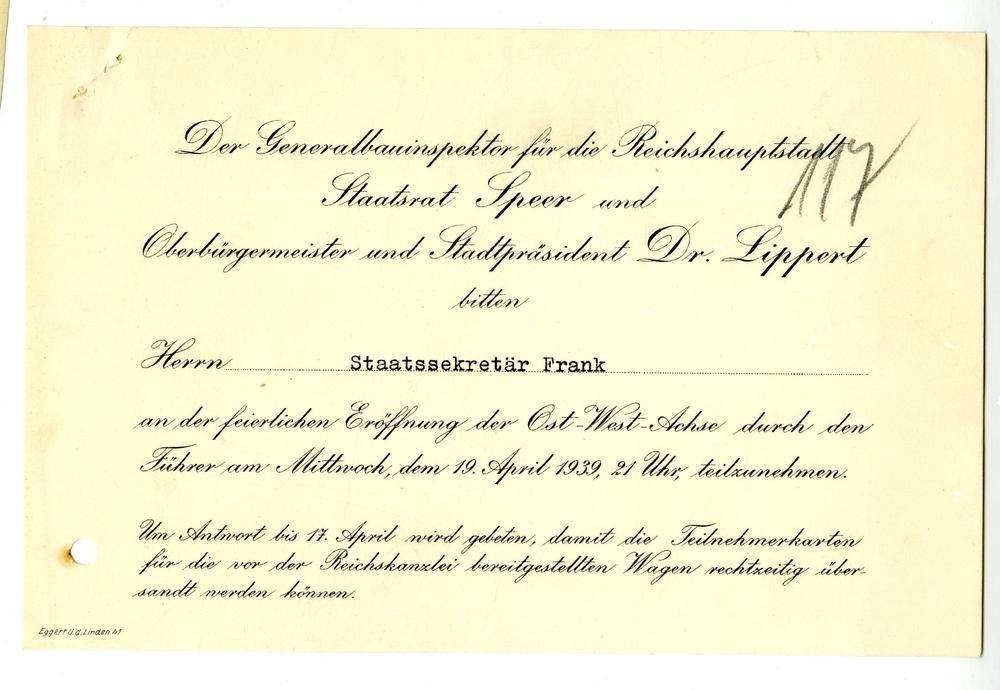 Der Generalbauinspektor für die Reichshauptstadt
117
Staatsrat Speer und
Oberbürgermeister und Stadtpräsident Dr. Lippert
bitten
Herrn Staatssekretär Frank
an der feierlichen Eröffnung der Ost-West-Achse durch den
Führer am Mittwoch, dem 19. April 1939, 21 Uhr, teilzunehmen.
Um Antwort bis 17. April wird gebeten, damit die Teilnehmerkarten
für die vor der Reichskanzlei bereitgestellten Wagen rechtzeitig über-
sandt werden können.
Eggert U.d.Linden 41